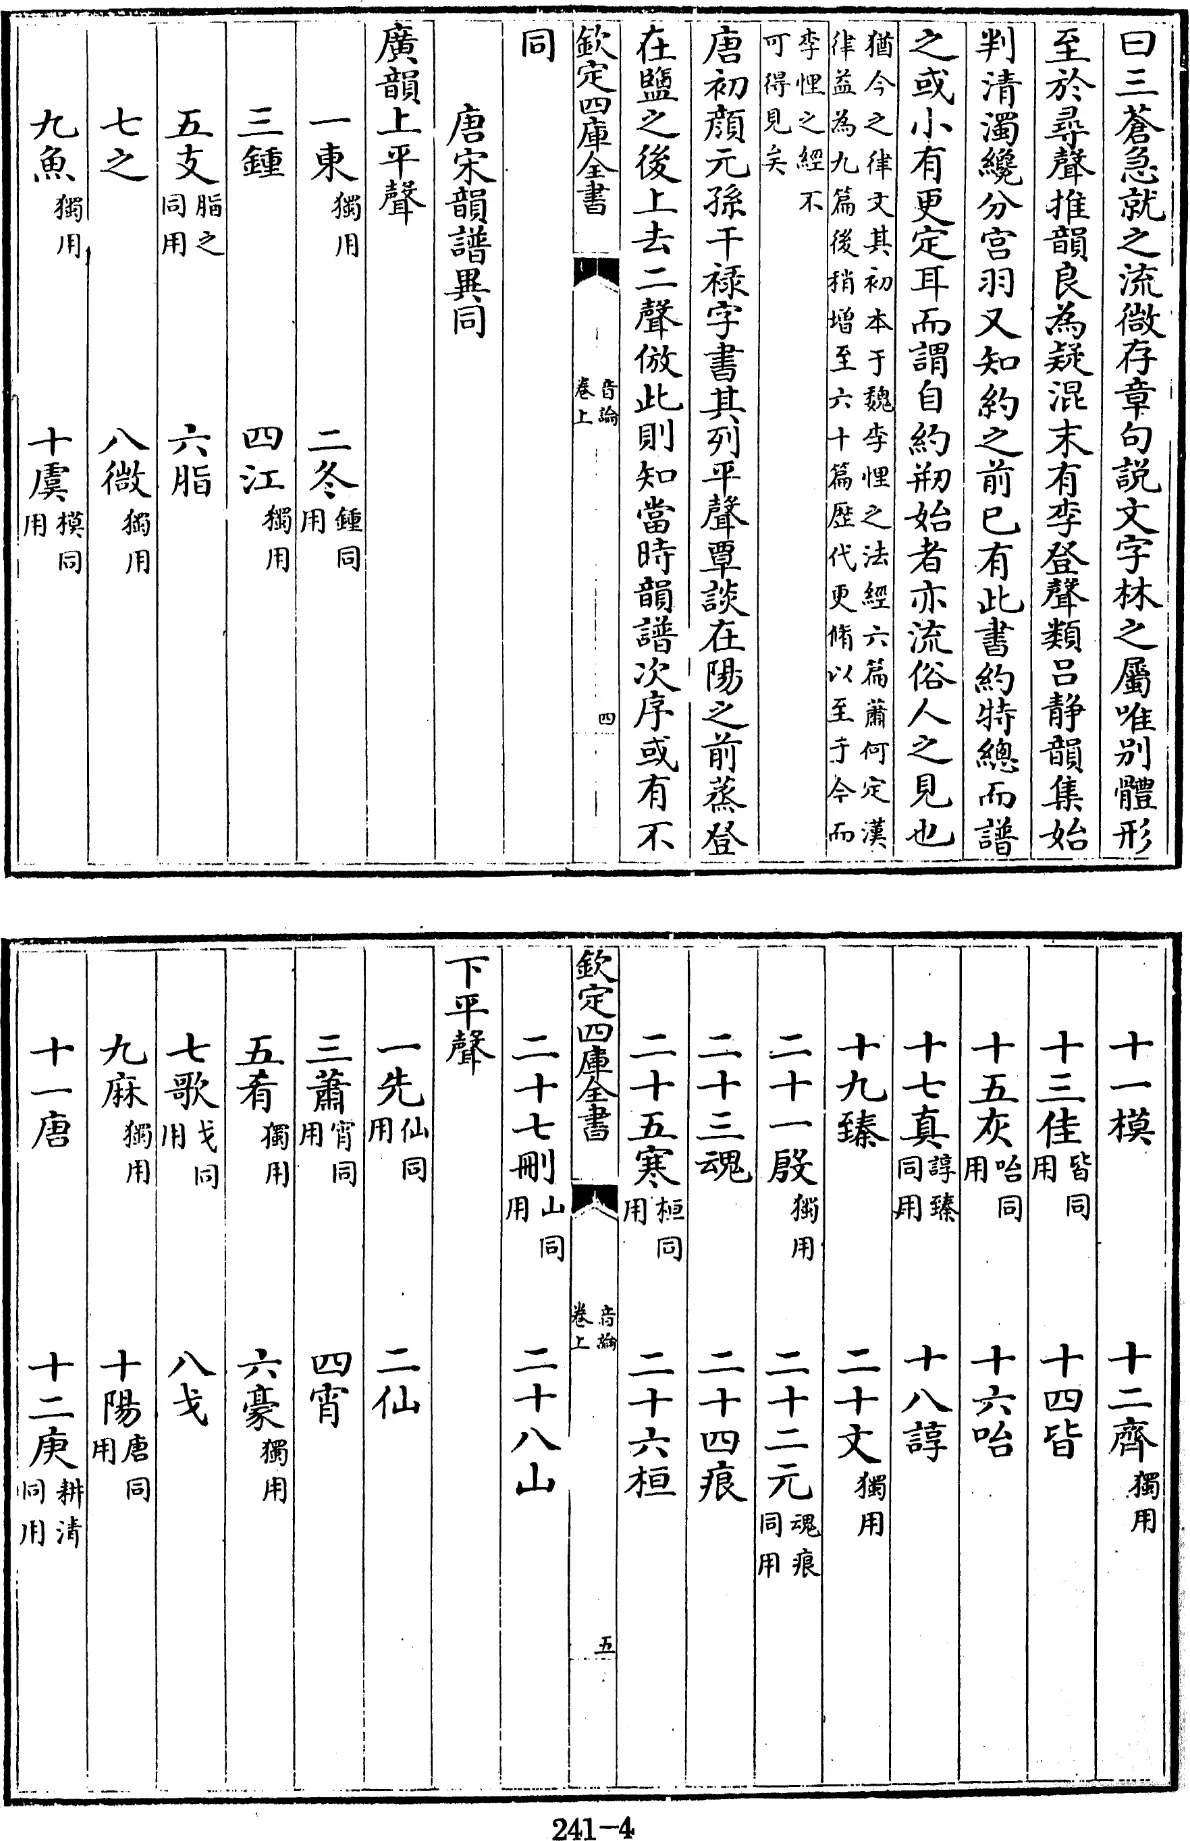 曰三蒼急就之流微存章句説文字林之屬唯别體形
至於尋聲推韻良為疑混末有李登聲類吕静韻集始
判清濁纔分宫羽又知約之前已有此書約特總而譜
之或小有更定耳而謂自約刱始者亦流俗人之見也
猶今之律文其初本于魏李悝之法經六篇蕭何定漢
律益為九篇後稍增至六十篇歴代更脩以至于今而
李悝之經不
可得見矣
唐初顔元孫干禄字書其列平聲覃談在陽之前蒸登
在鹽之後上去二聲倣此則知當時韻譜次序或有不
欽定四庫全書
音論
卷上
四
同
唐宋韻譜異同
廣韻上平聲
一東獨用 二冬鍾同用
三鍾 四江獨用
五支脂之同用 六脂
七之 八微獨用
九魚獨用 十虞模同用
十一模 十二齊獨用
十三佳皆同用 十四皆
十五灰咍同用 十六咍
十七真諄臻同用 十八諄
十九臻 二十文獨用
二十一殷獨用 二十二元魂痕同用
二十三魂 二十四痕
二十五寒桓同用 二十六桓
欽定四庫全書
音論
卷上
五
二十七刪山同用 二十八山
下平聲
一先仙同用 二仙
三蕭宵同用 四宵
五肴獨用 六豪獨用
七歌戈同用 八戈
九麻獨用 十陽唐同用
十一唐 十二庚耕清同用
241-4